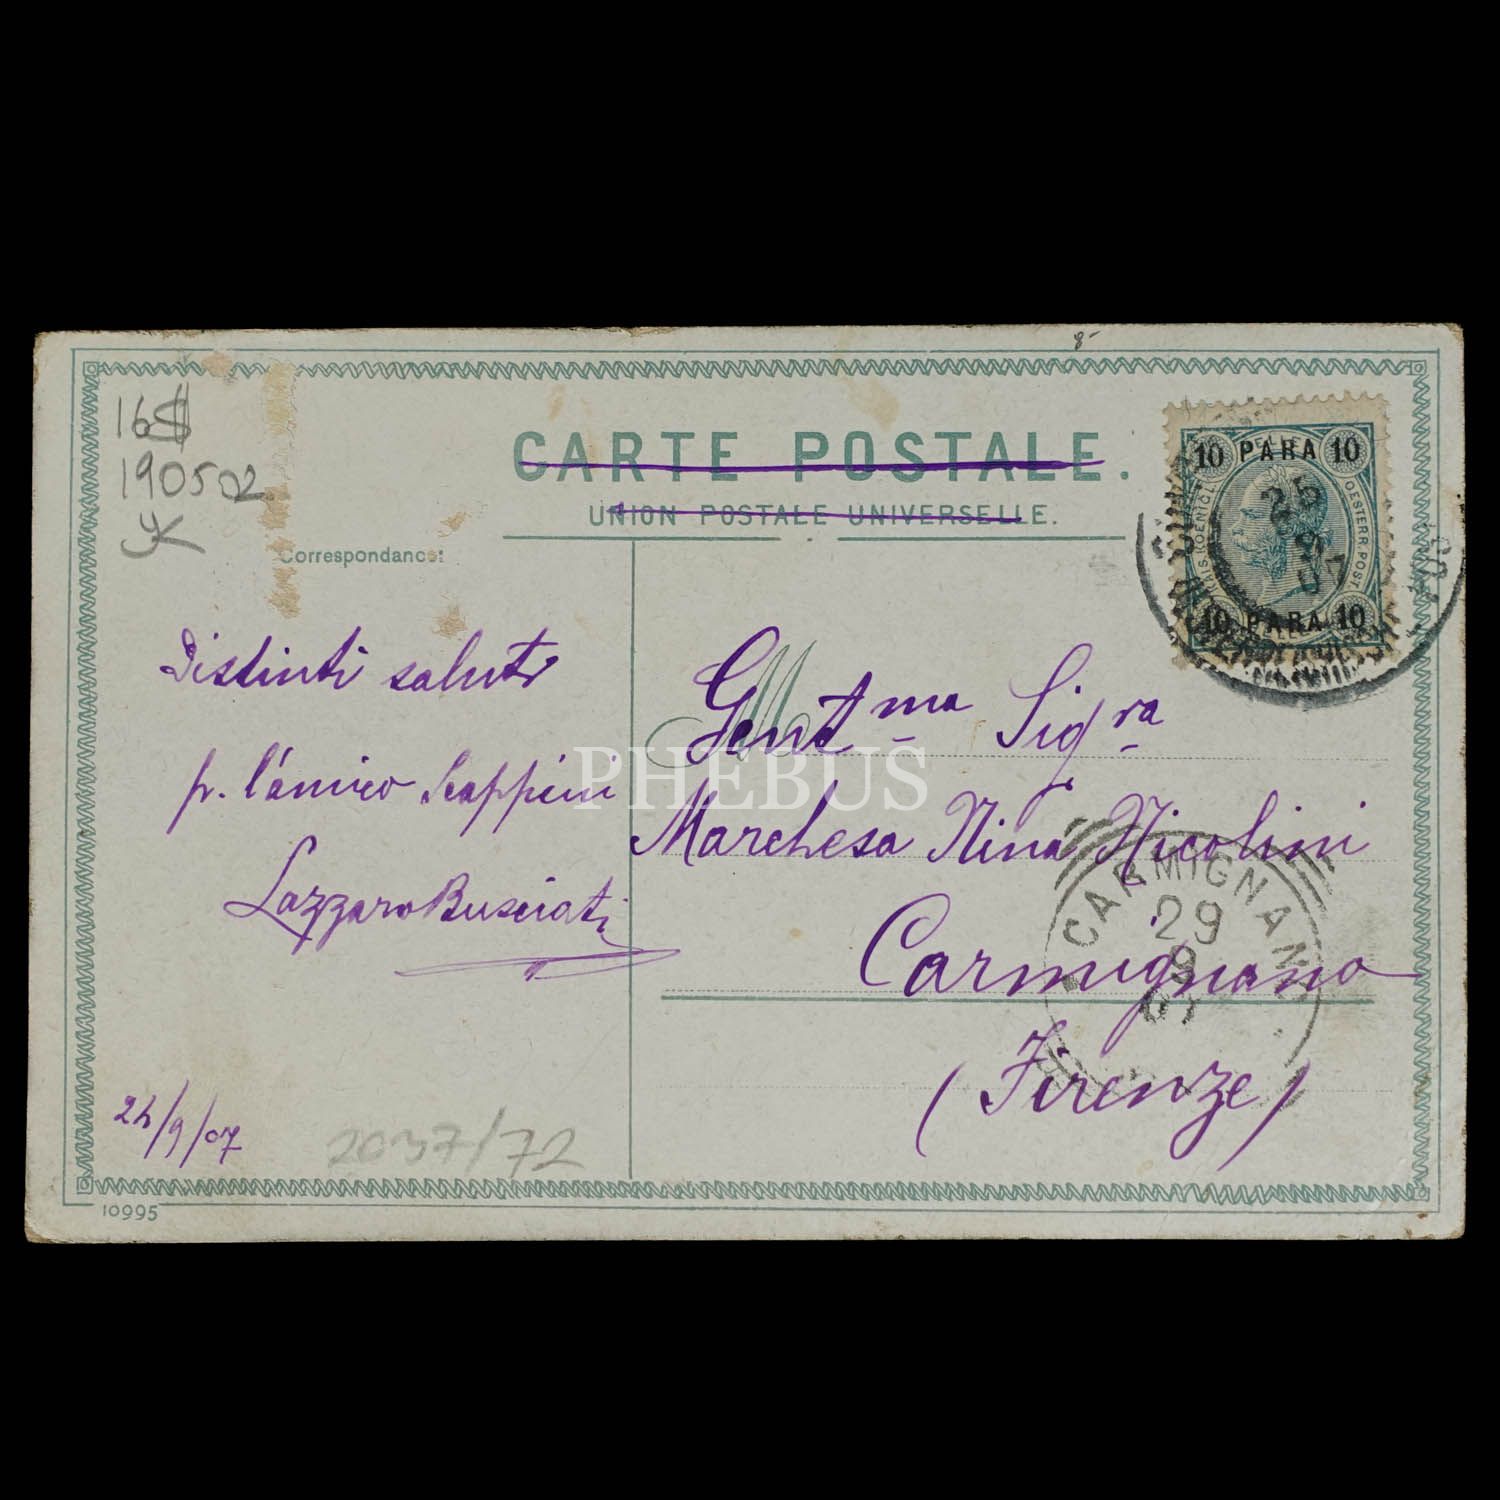 16$
190502
CARTE POSTALE.
UNION POSTALE UNIVERSELLE.
Correspondance:
10 PARA 10
HELLER
KAIS. KOENIGL. OESTERR. POST
10 PARA 10
25
9
07
Distinti saluti
p. l'amico Scappini
Lazzaro Busciati
24/9/07
2037/72
10995
Gentma Sigra
Marchesa Nina Nicolini
Carmignano
(Firenze)
CARMIGNANO
29
9
07
PHEBUS